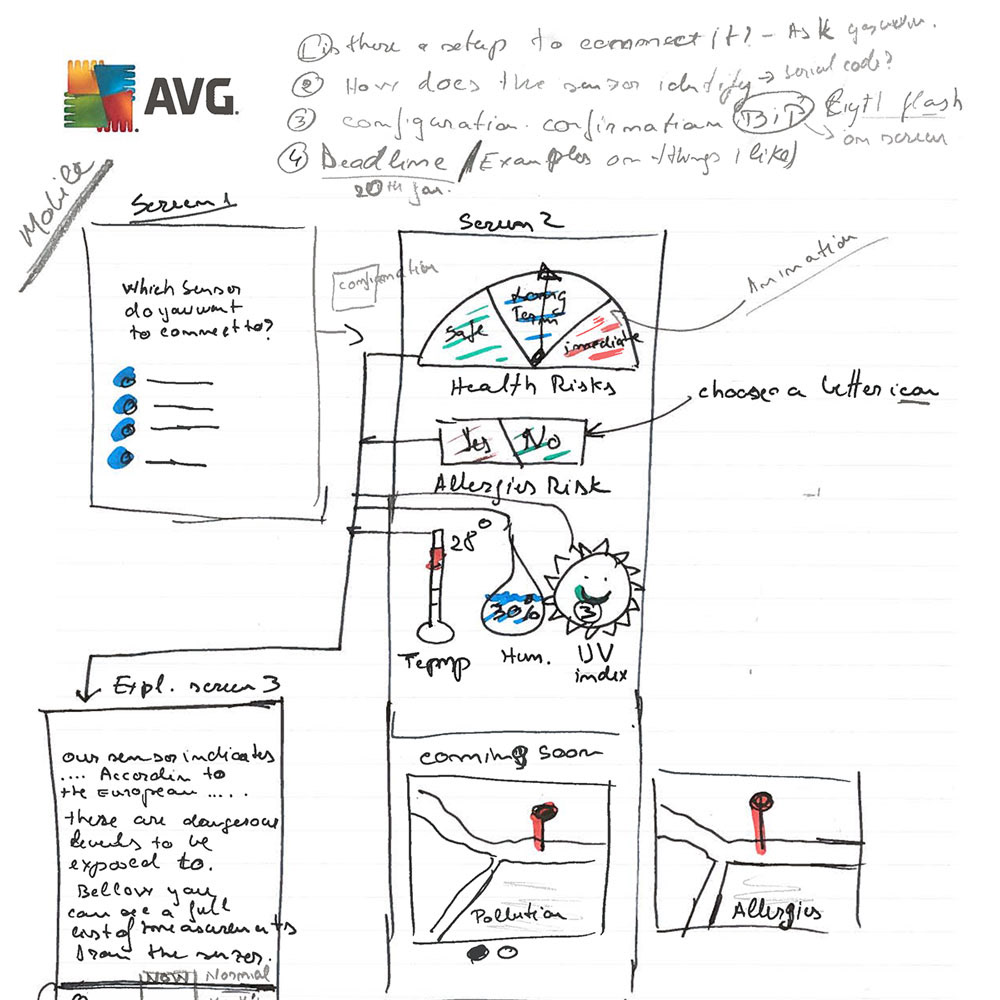 AVG.
① is there a setup to connect it? - Ask
② How does the sensor identify → serial code?
③ configuration. confirmation BiP flash
→ on screen
④ Deadline / Examples on things I like
20th Jan.
Mobile
Screen 1
Which sensor
do you want
to connect to?
confirmation
Screen 2
Safe
Long
Term
imediate
Animation
Health Risks
Yes No
chooser a better icon
Allergies Risk
28°
30%
3
Temp
Hum.
UV
index
Expl. screen 3
our sensor indicates
.... Accordin to
the European .....
these are dangerous
levels to be
exposed to.
Bellow you
can see a full
list of measurements
from the sensor.
NOW Normal
comming soon
Pollution
Allergies